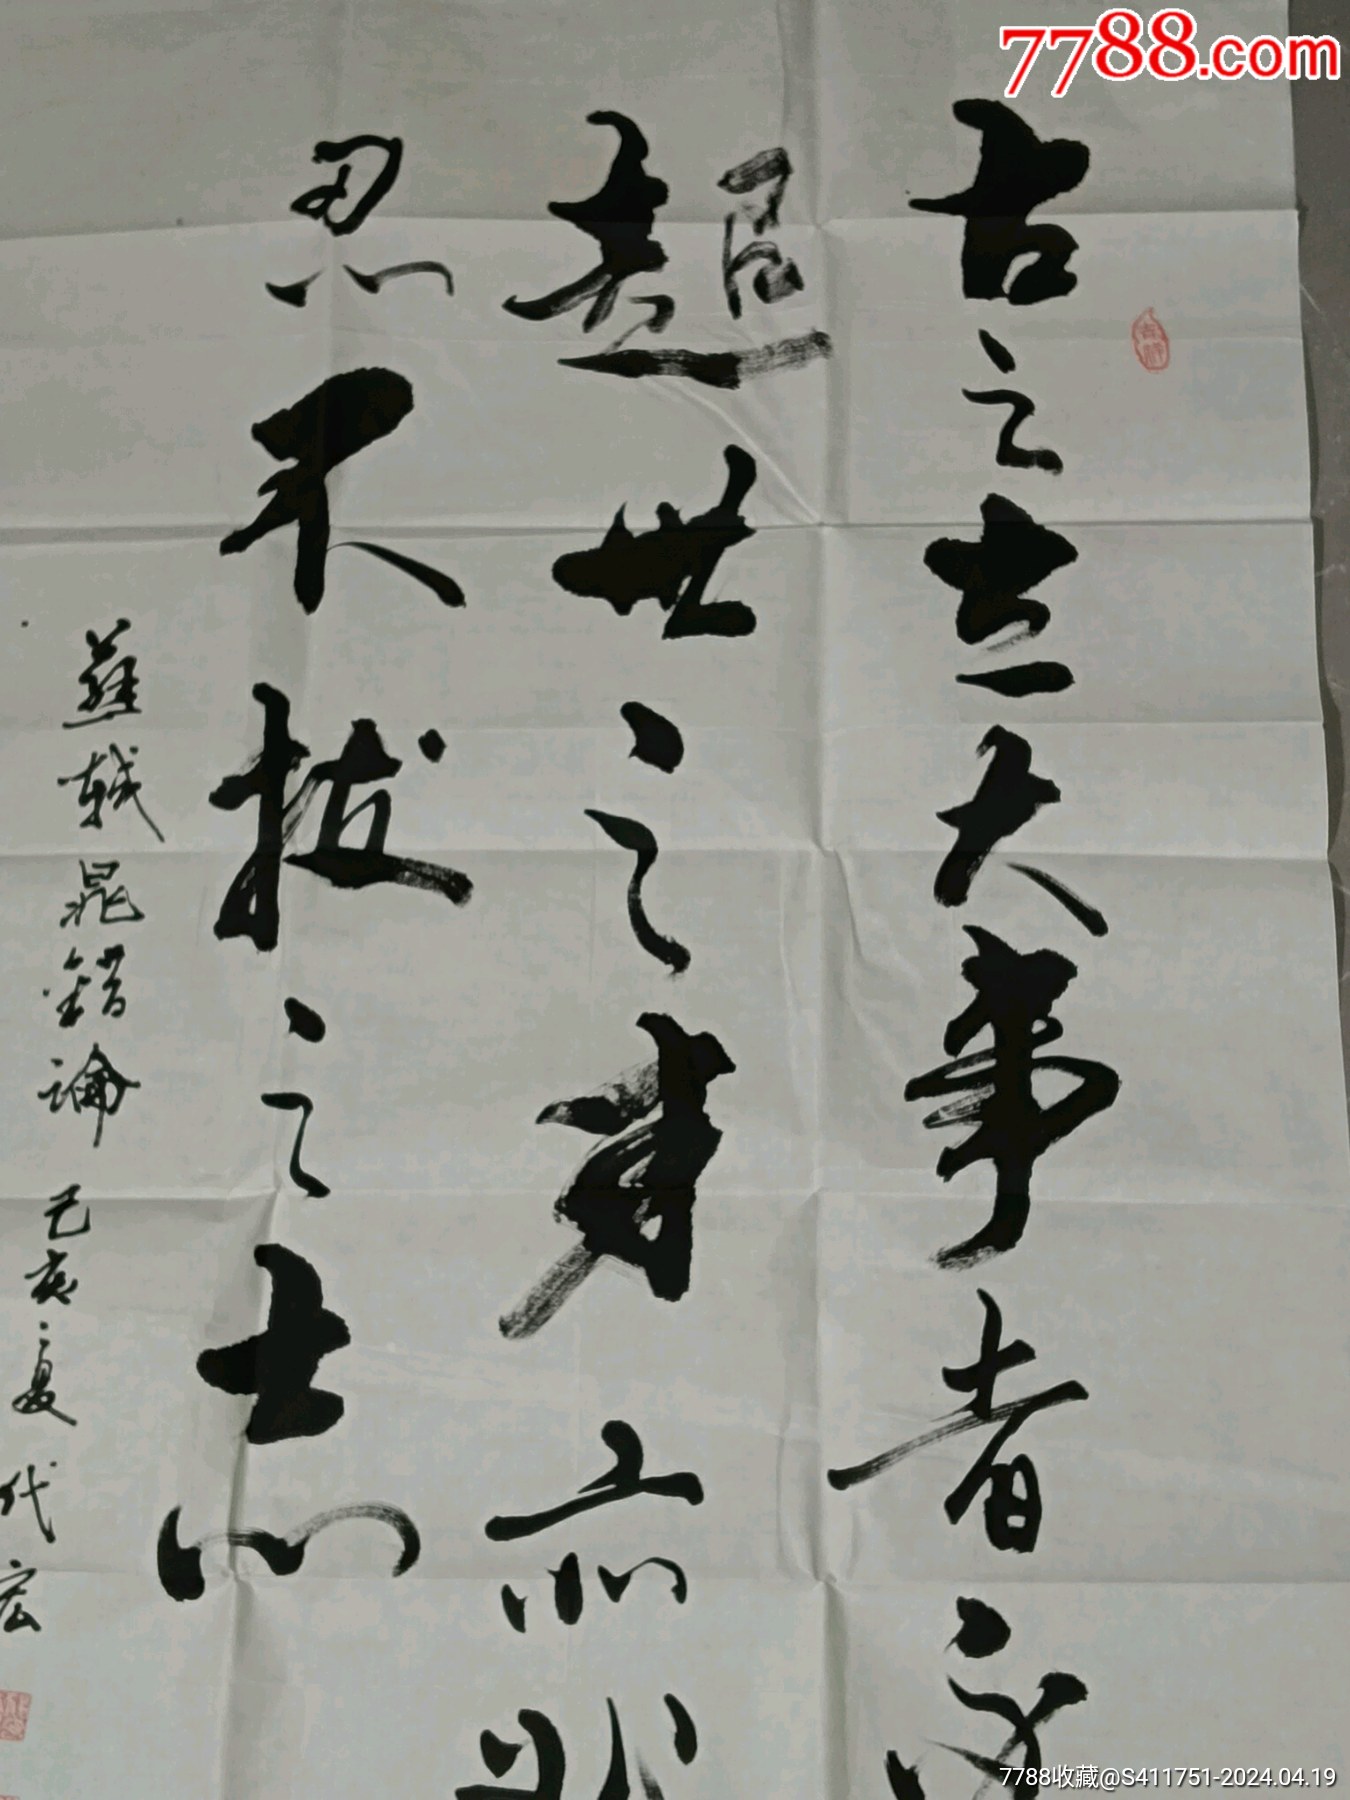 7788.com
古之立大事者
超世之才亦
忍不拔之志
蘇軾晁錯論 己亥之夏 代宏
7788收藏@S411751-2024.04.19